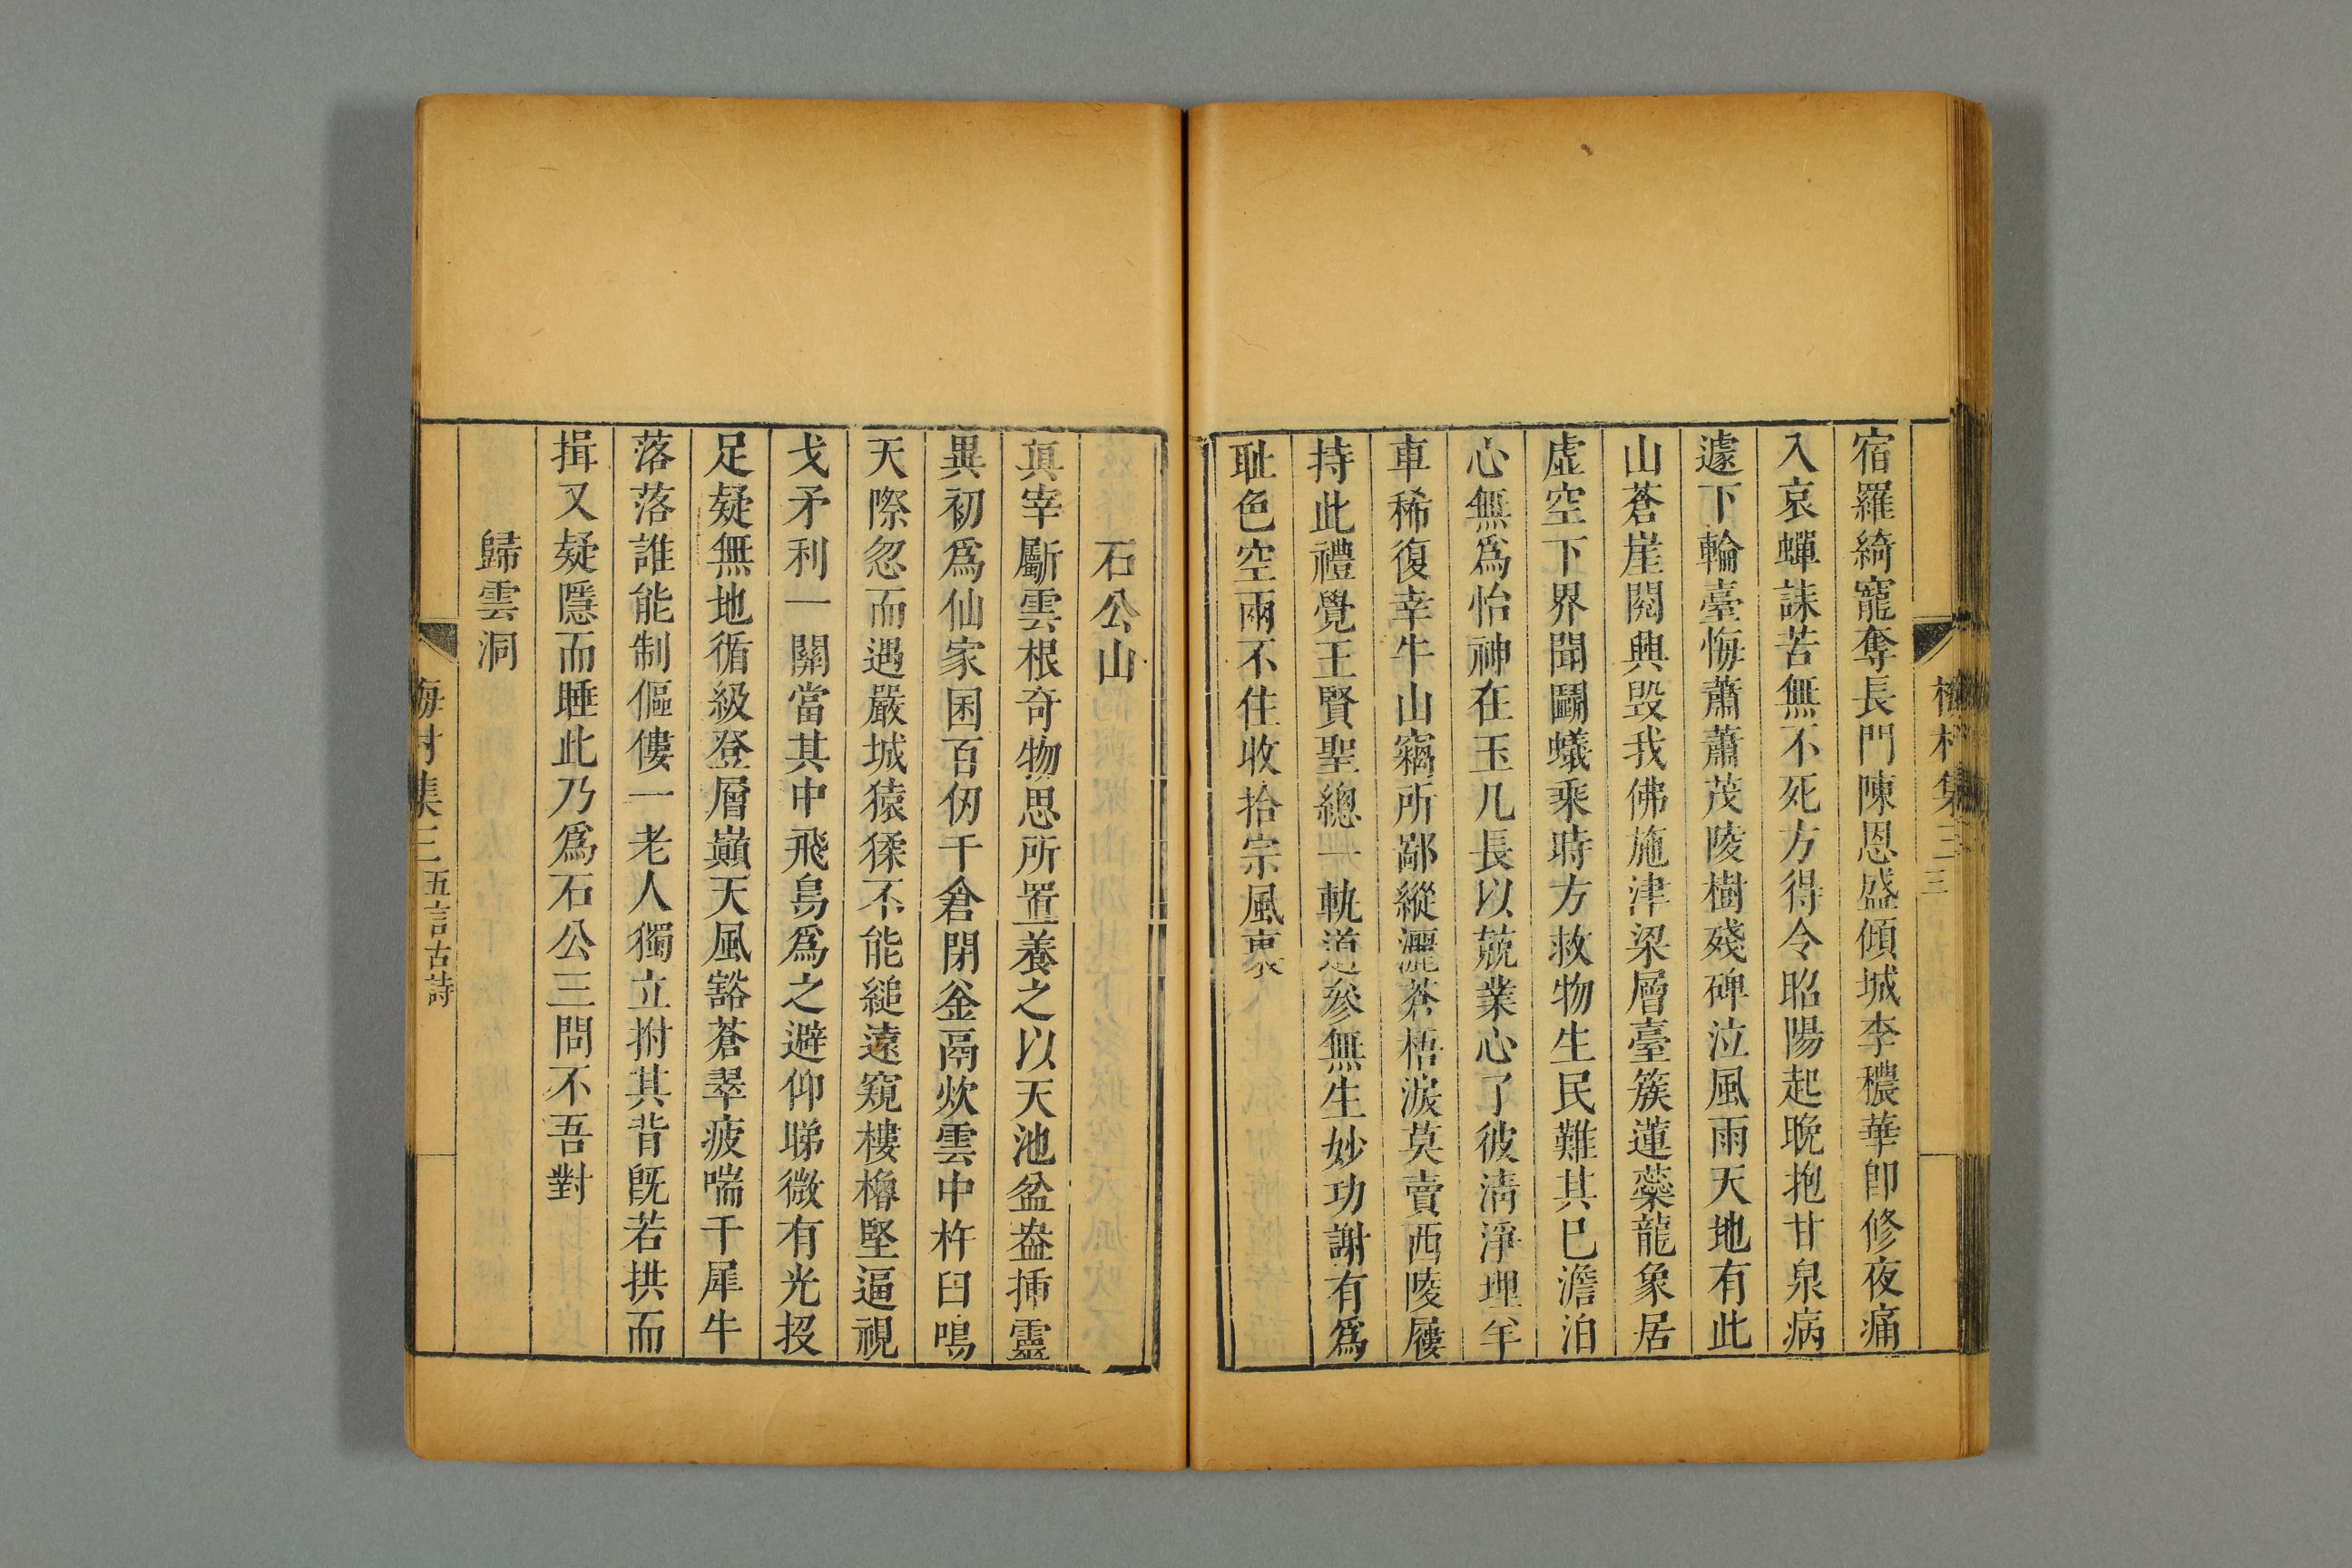 梅村集三 三
宿羅綺寵奪長門陳恩盛傾城李穠華卽修夜痛
入哀蟬誄苦無不死方得令昭陽起晚抱甘泉病
遽下輪臺悔蕭蕭茂陵樹殘碑泣風雨天地有此
山蒼崖閱興毀我佛施津梁層臺簇蓮蘂龍象居
虛空下界聞鬭蟻乘時方救物生民難其已澹泊
心無爲怡神在玉几長以兢業心了彼淸淨理
車稀復幸牛山竊所鄙縱灑蒼梧淚莫賣西陵屨
持此禮覺王賢聖總一軌道參無生妙功謝有爲
耻色空兩不住收拾宗風裏
石公山
眞宰斸雲根奇物思所置養之以天池盆盎揷靈
異初爲仙家囷百仞千倉閉釜鬲炊雲中杵臼鳴
天際忽而遇嚴城猿猱不能縋遠窺樓櫓堅逼視
戈矛利一關當其中飛鳥爲之避仰睇微有光投
足疑無地循級登層巔天風豁蒼翠疲喘千犀牛
落落誰能制傴僂一老人獨立拊其背旣若拱而
揖又疑隱而睡此乃爲石公三問不吾對
歸雲洞
梅村集三 五言古詩